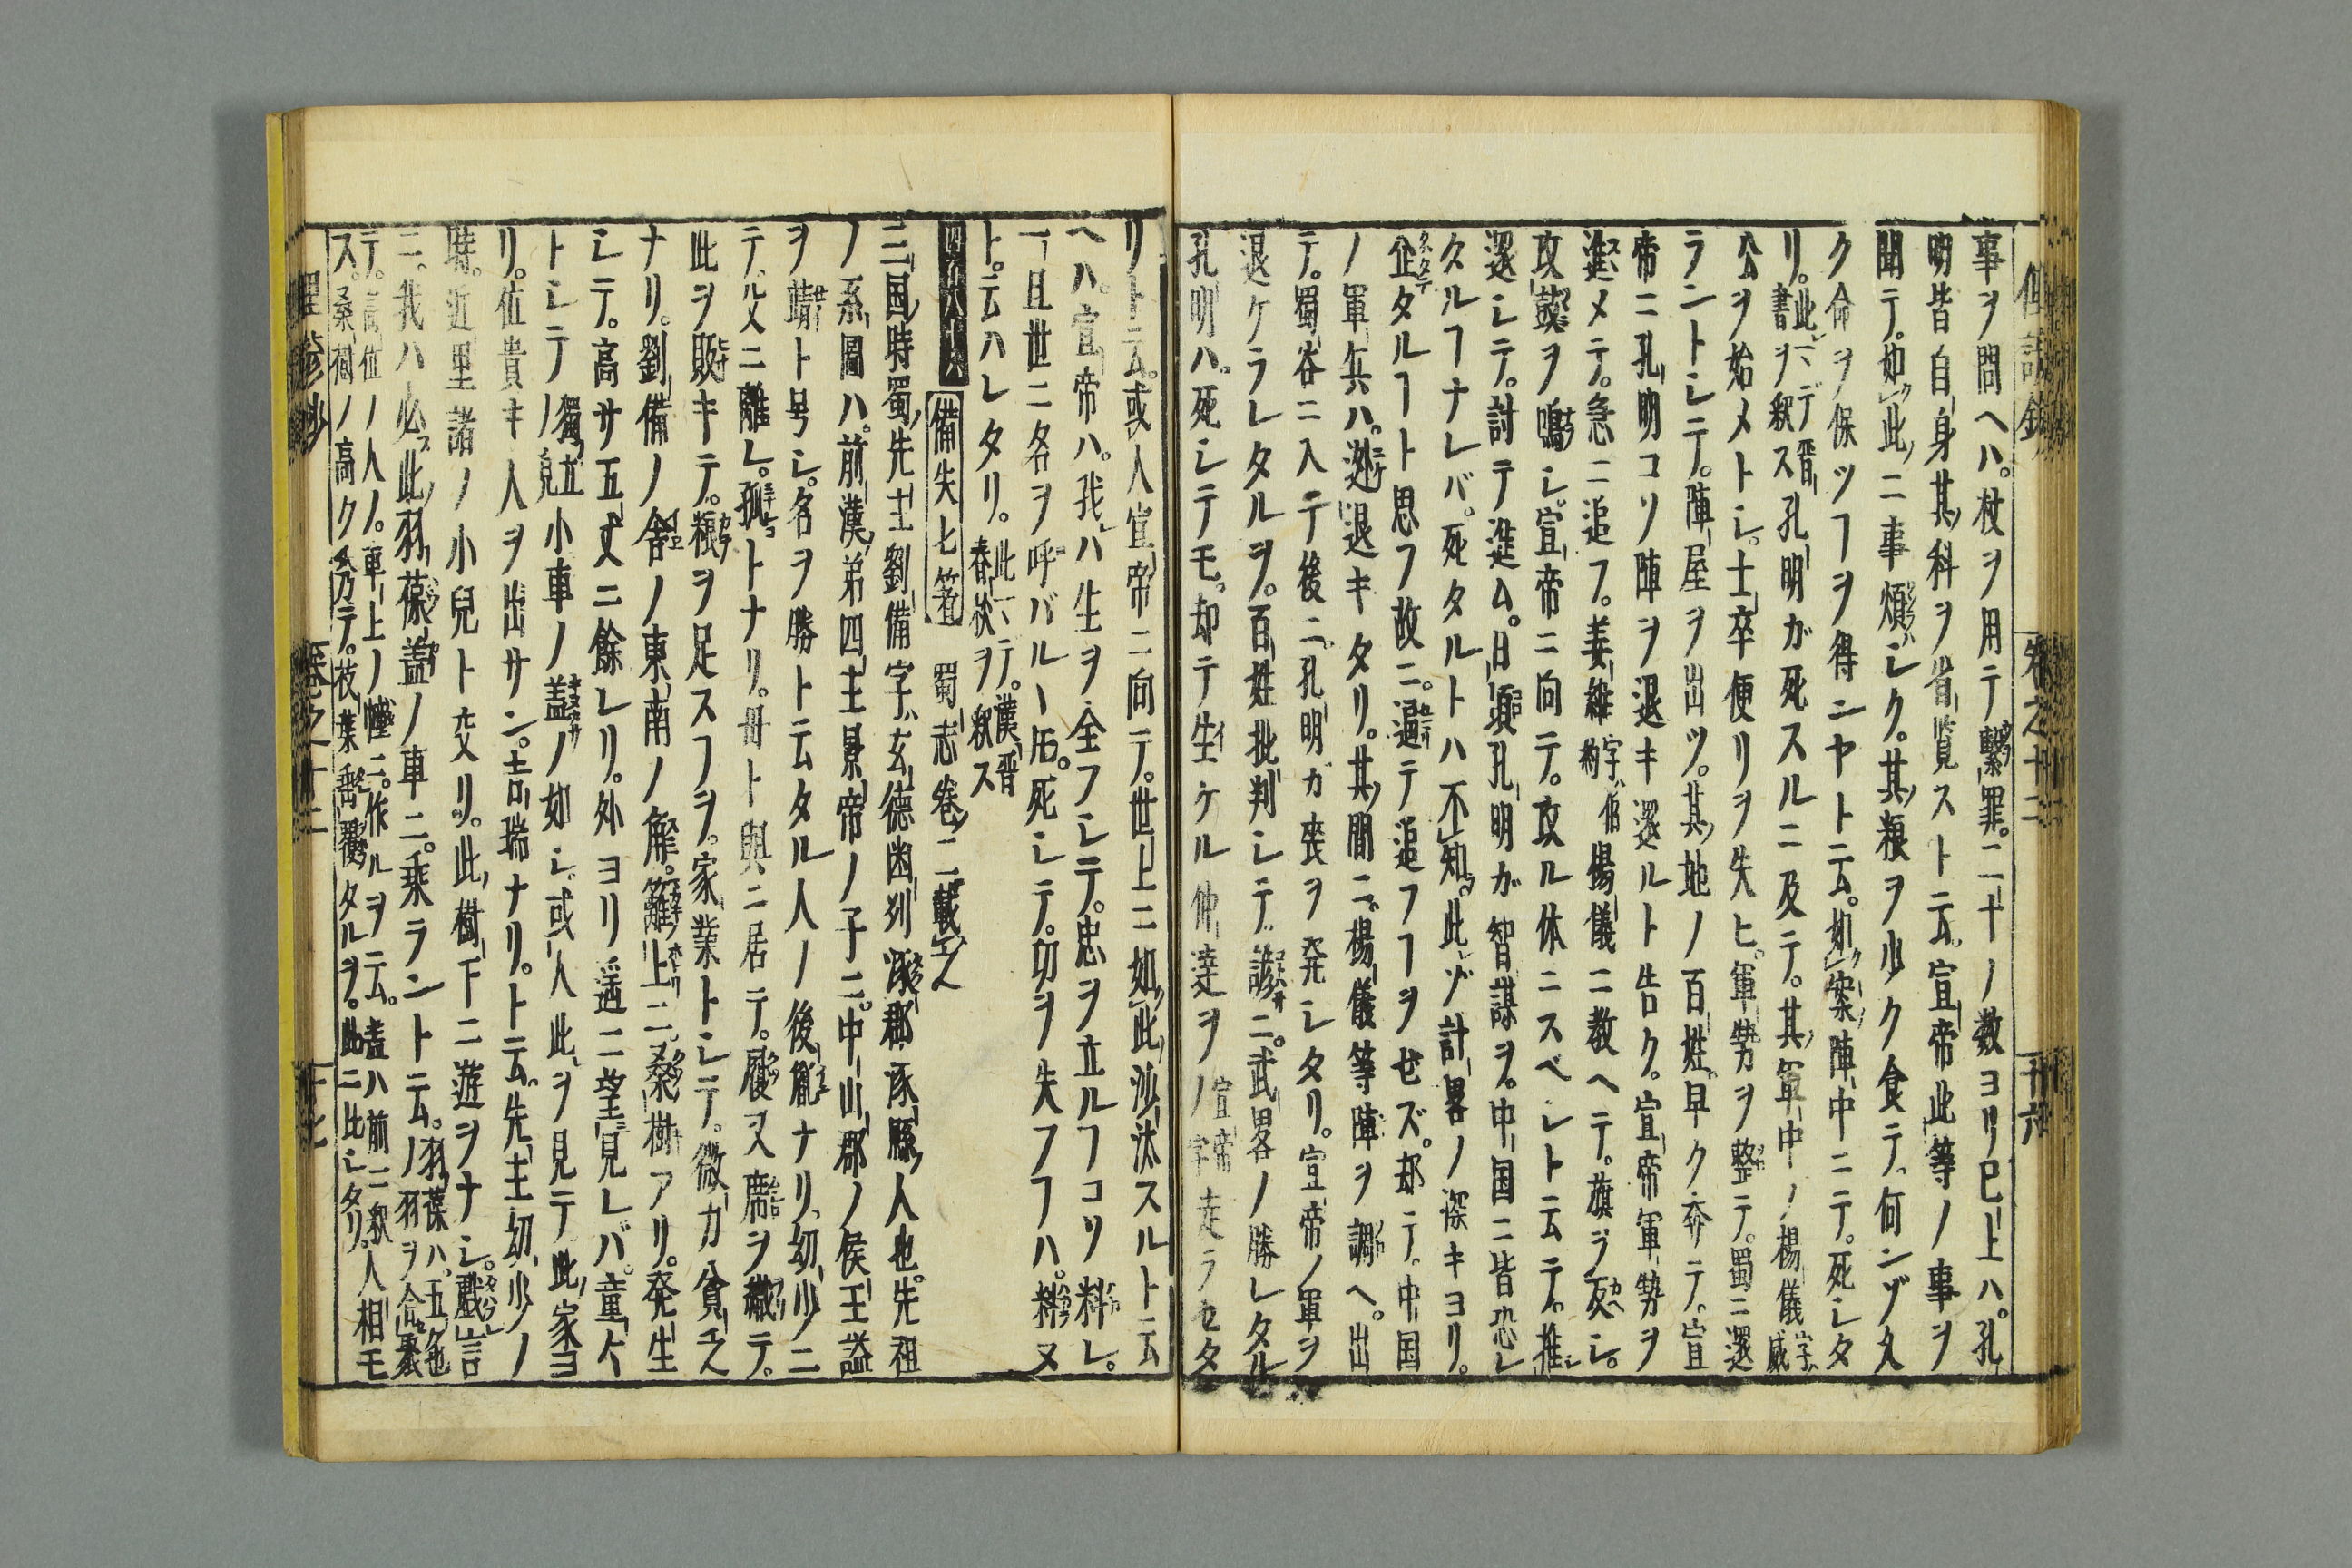 事ヲ問ヘハ。杖ヲ用テ繋罪。二十ノ数ヨリ已上ハ。孔
明皆自身其科ヲ省覧スト云。宣帝此等ノ事ヲ
聞テ。如此ニ事煩シク。其粮ヲ少ク食テ。何ンゾ久
ク命ヲ保ツヿヲ得ンヤト云。如案陣中ニテ。死シタ
リ。此ハ晋書ヲ釈ス 孔明ガ死スルニ及テ。其軍中ノ楊儀字ハ威
公ヲ始メトシ。士卒便リヲ失ヒ。軍勢ヲ整テ。蜀ニ還
ラントシテ。陣屋ヲ出ツ。其地ノ百姓。早ク奔テ。宣
帝ニ孔明コソ陣ヲ退キ還ルト告ク。宣帝軍勢ヲ
進メテ。急ニ追フ。姜維字ハ伯約 楊儀ニ教ヘテ。旗ヲ反シ。
攻鼓ヲ鳴シ。宣帝ニ向テ。攻ル体ニスベシト云テ。推
還シテ。討テ進ム。日頃孔明ガ智謀ヲ。中国ニ皆恐レ
タルヿナレバ。死タルトハ不知。此ゾ計畧ノ深キヨリ。
企タルヿト思フ故ニ。逼テ追フヿヲせズ。却テ。中国
ノ軍兵ハ。逃退キタリ。其間ニ。楊儀等陣ヲ調ヘ。出
テ。蜀谷ニ入テ後ニ。孔明ガ喪ヲ発シタリ。宣帝ノ軍ヲ
退ケラレタルヲ。百姓批判シテ。諺ニ。武畧ノ勝レタル
孔明ハ。死シテモ。却テ生ケル仲達ヲ宣帝ノ字 走ラセタ
リト云。或人宣帝ニ向テ。世上ニ如此沙汰スルト云
ヘハ。宣帝ハ。我ハ生ヲ全フシテ。忠ヲ立ルヿコソ料レ。
一旦世ニ名ヲ呼バル一店。死シテ。功ヲ失フヿハ。料ヌ
ト。云ハレタリ。此ハ漢晋春秋ヲ釈ス
備失匕筯 蜀志巻二載之
三国時蜀先主劉備字ハ玄徳幽州涿郡涿縣人也。先祖
ノ系圖ハ。前漢第四主景帝ノ子ニ。中山郡ノ侯王諡
ヲ靖ト号シ。名ヲ勝ト云タル人ノ後胤ナリ。幼少ニ
テ。父ニ離レ。孤トナリ。毋ト與ニ居テ。履又席ヲ織テ。
此ヲ販キテ。粮ヲ足スヿヲ。家業トシテ。微力貧乏
ナリ。劉備ノ舎ノ東南ノ角。籬上ニ。桑樹アリ。発生
シテ。高サ五丈ニ餘レリ。外ヨリ遥ニ望見レバ。童々
トシテ獨立ノ皃 小車ノ蓋ノ如シ。或人此ヲ見テ此家ヨ
リ。位貴キ人ヲ出サン。吉瑞ナリ。ト云。先主幼少ノ
時。近里諸ノ小兒ト交リ。此樹下ニ遊ヲナシ。戯言
ニ。我ハ必此羽葆蓋ノ車ニ。乗ラントト云。羽葆ハ。五色ノ羽ヲ合裹
テ。高位ノ人ノ。車上ノ幢ニ。作ルヲ云。蓋ハ前ニ釈 人相モ
ス。桑樹ノ高ク秀テ。枝葉垂覆タルヲ。此ニ比シタリ。
理参抄 巻之十二 十七
巻之十二